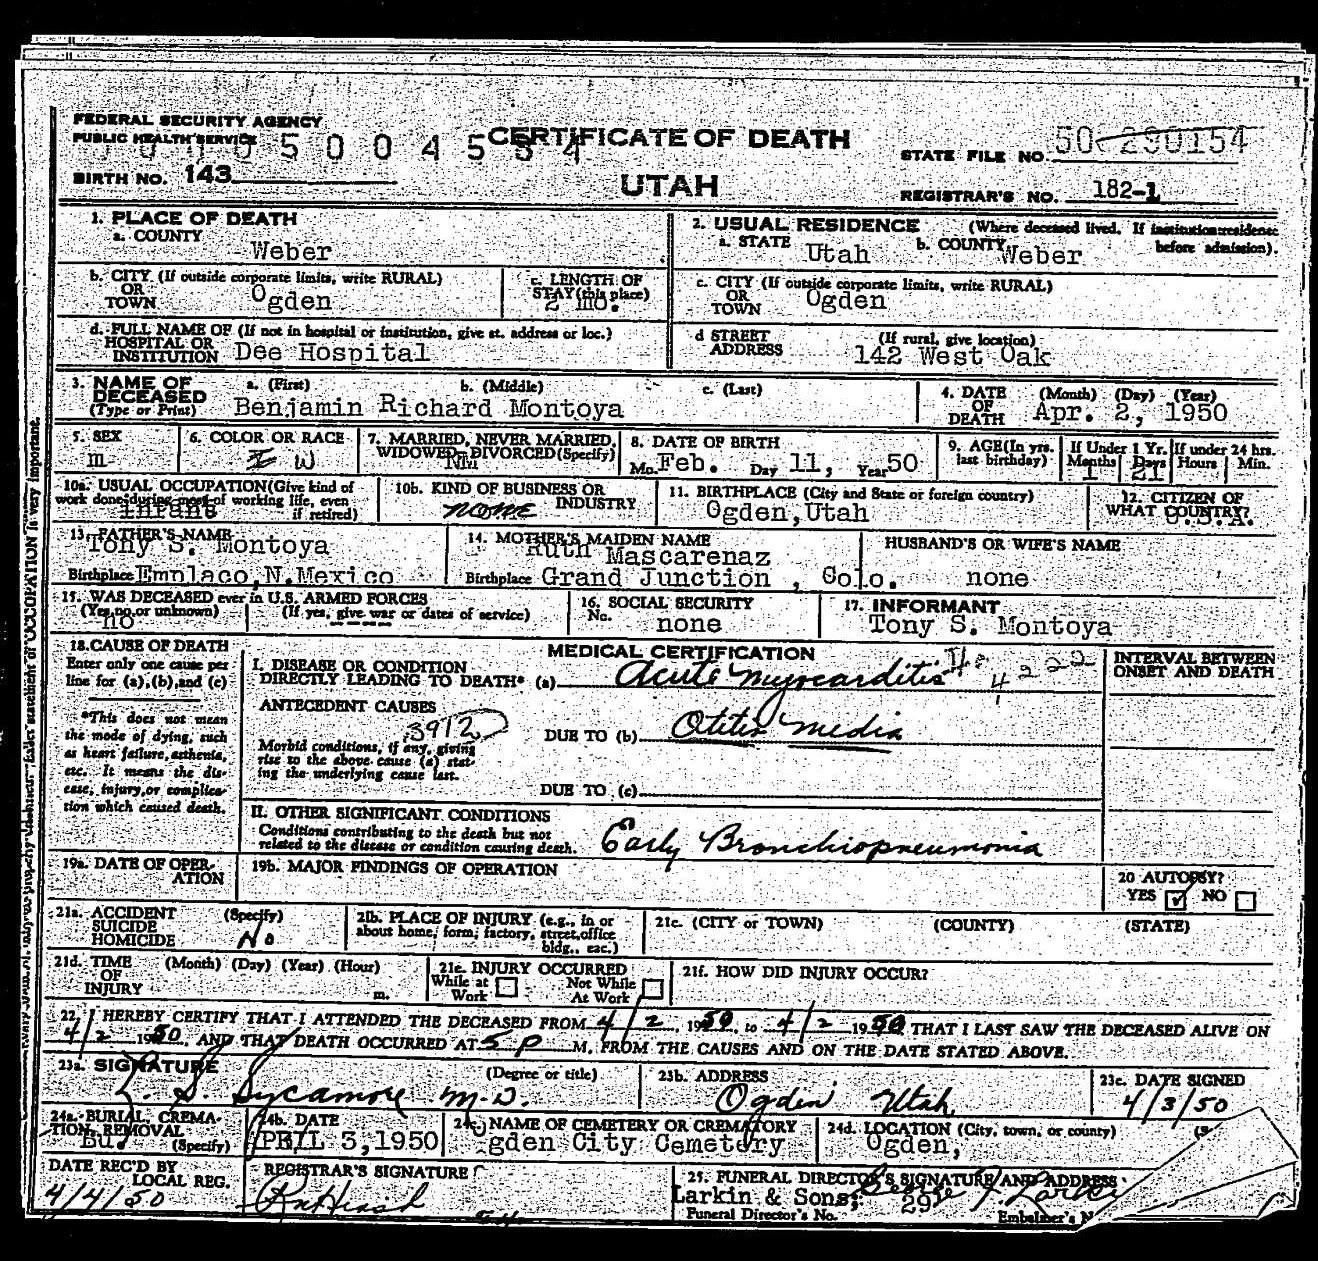 FEDERAL SECURITY AGENCY
PUBLIC HEALTH SERVICE
CERTIFICATE OF DEATH
UTAH
BIRTH NO. 143
STATE FILE NO.
REGISTRAR'S NO. 182-1
1. PLACE OF DEATH
a. COUNTY
Weber
2. USUAL RESIDENCE (Where deceased lived. If institution: residence before admission).
a. STATE Utah b. COUNTY Weber
b. CITY (If outside corporate limits, write RURAL)
OR TOWN Ogden
c. LENGTH OF STAY (this place)
2 mo.
c. CITY (If outside corporate limits, write RURAL)
OR TOWN Ogden
d. FULL NAME OF (If not in hospital or institution, give st. address or loc.)
HOSPITAL OR INSTITUTION Dee Hospital
d STREET ADDRESS (If rural, give location)
142 West Oak
3. NAME OF DECEASED (Type or Print)
a. (First) b. (Middle) c. (Last)
Benjamin Richard Montoya
4. DATE OF DEATH (Month) (Day) (Year)
Apr. 2, 1950
5. SEX
m
6. COLOR OR RACE
W
7. MARRIED, NEVER MARRIED, WIDOWED, DIVORCED (Specify)
NM
8. DATE OF BIRTH
Mo. Feb. Day 11, Year 50
9. AGE (In yrs. last birthday)
If Under 1 Yr. Months Days
1 21
If under 24 hrs. Hours Min.
10a. USUAL OCCUPATION (Give kind of work done during most of working life, even if retired)
infant
10b. KIND OF BUSINESS OR INDUSTRY
none
11. BIRTHPLACE (City and State or foreign country)
Ogden, Utah
12. CITIZEN OF WHAT COUNTRY?
U.S.A.
13. FATHER'S NAME
Tony S. Montoya
Birthplace Emplaco, N.Mexico
14. MOTHER'S MAIDEN NAME
Ruth Mascarenaz
Birthplace Grand Junction , Colo.
HUSBAND'S OR WIFE'S NAME
none
15. WAS DECEASED ever in U.S. ARMED FORCES
(Yes, no, or unknown) (If yes, give war or dates of service)
no -----
16. SOCIAL SECURITY No.
none
17. INFORMANT
Tony S. Montoya
18. CAUSE OF DEATH
Enter only one cause per line for (a), (b), and (c)
*This does not mean the mode of dying, such as heart failure, asthenia, etc. It means the disease, injury, or complication which caused death.
MEDICAL CERTIFICATION
I. DISEASE OR CONDITION DIRECTLY LEADING TO DEATH* (a) Acute Myocarditis
ANTECEDENT CAUSES
3912
Morbid conditions, if any, giving rise to the above cause (a) stating the underlying cause last.
DUE TO (b) Otitis Media
DUE TO (c)
II. OTHER SIGNIFICANT CONDITIONS
Conditions contributing to the death but not related to the disease or condition causing death.
Early Bronchiopneumonia
INTERVAL BETWEEN ONSET AND DEATH
19a. DATE OF OPERATION
19b. MAJOR FINDINGS OF OPERATION
20 AUTOPSY?
YES ✓ NO
21a. ACCIDENT SUICIDE HOMICIDE (Specify)
No
21b. PLACE OF INJURY (e.g., in or about home, form, factory, street, office bldg., etc.)
21c. (CITY or TOWN) (COUNTY) (STATE)
21d. TIME OF INJURY (Month) (Day) (Year) (Hour) m.
21e. INJURY OCCURRED
While at Work Not While At Work
21f. HOW DID INJURY OCCUR?
22. I HEREBY CERTIFY THAT I ATTENDED THE DECEASED FROM 4/2, 1950, to 4/2 1950 THAT I LAST SAW THE DECEASED ALIVE ON
4/2 1950, AND THAT DEATH OCCURRED AT 5 P M, FROM THE CAUSES AND ON THE DATE STATED ABOVE.
23a. SIGNATURE (Degree or title)
L. S. Sycamore M.D.
23b. ADDRESS
Ogden Utah
23c. DATE SIGNED
4/3/50
24a. BURIAL, CREMATION, REMOVAL (Specify)
Bur
24b. DATE
APRIL 3, 1950
24c NAME OF CEMETERY OR CREMATORY
Ogden City Cemetery
24d. LOCATION (City, town, or county)
Ogden,
DATE REC'D BY LOCAL REG.
4/4/50
REGISTRAR'S SIGNATURE
25. FUNERAL DIRECTOR'S SIGNATURE AND ADDRESS
Larkin & Sons;
Funeral Director's No. 29
Embalmer's